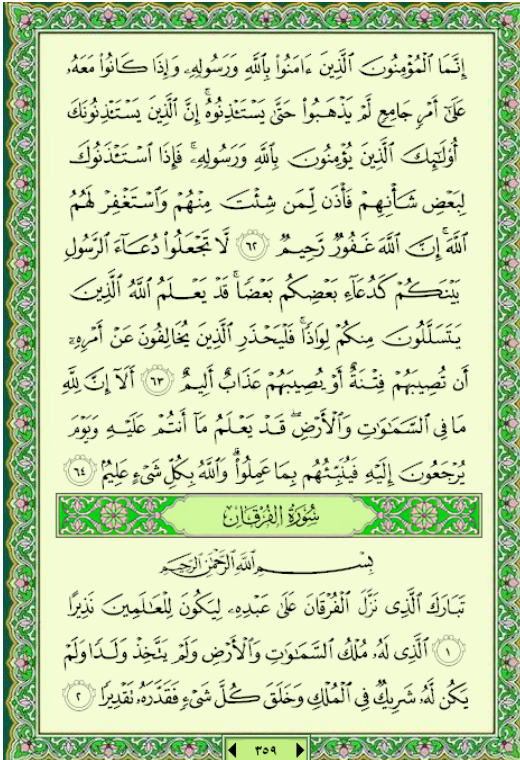 إِنَّمَا ٱلْمُؤْمِنُونَ ٱلَّذِينَ ءَامَنُوا۟ بِٱللَّهِ وَرَسُولِهِۦ وَإِذَا كَانُوا۟ مَعَهُۥ
عَلَىٰٓ أَمْرٍ جَامِعٍ لَّمْ يَذْهَبُوا۟ حَتَّىٰ يَسْتَـْٔذِنُوهُ ۚ إِنَّ ٱلَّذِينَ يَسْتَـْٔذِنُونَكَ
أُو۟لَـٰٓئِكَ ٱلَّذِينَ يُؤْمِنُونَ بِٱللَّهِ وَرَسُولِهِۦ ۚ فَإِذَا ٱسْتَـْٔذَنُوكَ
لِبَعْضِ شَأْنِهِمْ فَأْذَن لِّمَن شِئْتَ مِنْهُمْ وَٱسْتَغْفِرْ لَهُمُ
ٱللَّهَ ۚ إِنَّ ٱللَّهَ غَفُورٌ رَّحِيمٌ ٦٢ لَّا تَجْعَلُوا۟ دُعَآءَ ٱلرَّسُولِ
بَيْنَكُمْ كَدُعَآءِ بَعْضِكُم بَعْضًا ۚ قَدْ يَعْلَمُ ٱللَّهُ ٱلَّذِينَ
يَتَسَلَّلُونَ مِنكُمْ لِوَاذًا ۚ فَلْيَحْذَرِ ٱلَّذِينَ يُخَالِفُونَ عَنْ أَمْرِهِۦٓ
أَن تُصِيبَهُمْ فِتْنَةٌ أَوْ يُصِيبَهُمْ عَذَابٌ أَلِيمٌ ٦٣ أَلَآ إِنَّ لِلَّهِ
مَا فِى ٱلسَّمَـٰوَٰتِ وَٱلْأَرْضِ ۖ قَدْ يَعْلَمُ مَآ أَنتُمْ عَلَيْهِ وَيَوْمَ
يُرْجَعُونَ إِلَيْهِ فَيُنَبِّئُهُم بِمَا عَمِلُوا۟ ۗ وَٱللَّهُ بِكُلِّ شَىْءٍ عَلِيمٌۢ ٦٤
سُورَةُ الفُرْقَانِ
بِسْمِ ٱللَّهِ ٱلرَّحْمَـٰنِ ٱلرَّحِيمِ
تَبَارَكَ ٱلَّذِى نَزَّلَ ٱلْفُرْقَانَ عَلَىٰ عَبْدِهِۦ لِيَكُونَ لِلْعَـٰلَمِينَ نَذِيرًا
١ ٱلَّذِى لَهُۥ مُلْكُ ٱلسَّمَـٰوَٰتِ وَٱلْأَرْضِ وَلَمْ يَتَّخِذْ وَلَدًا وَلَمْ
يَكُن لَّهُۥ شَرِيكٌ فِى ٱلْمُلْكِ وَخَلَقَ كُلَّ شَىْءٍ فَقَدَّرَهُۥ تَقْدِيرًا ٢
٣٥٩